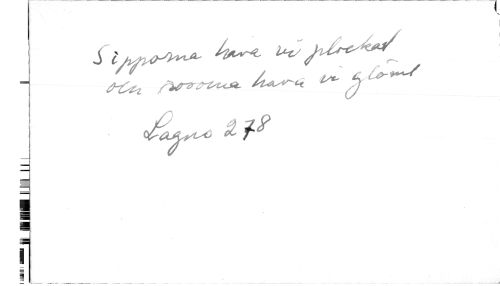 Sipporna hava vi plockat
och rosorna hava vi glömt
Lagno 278